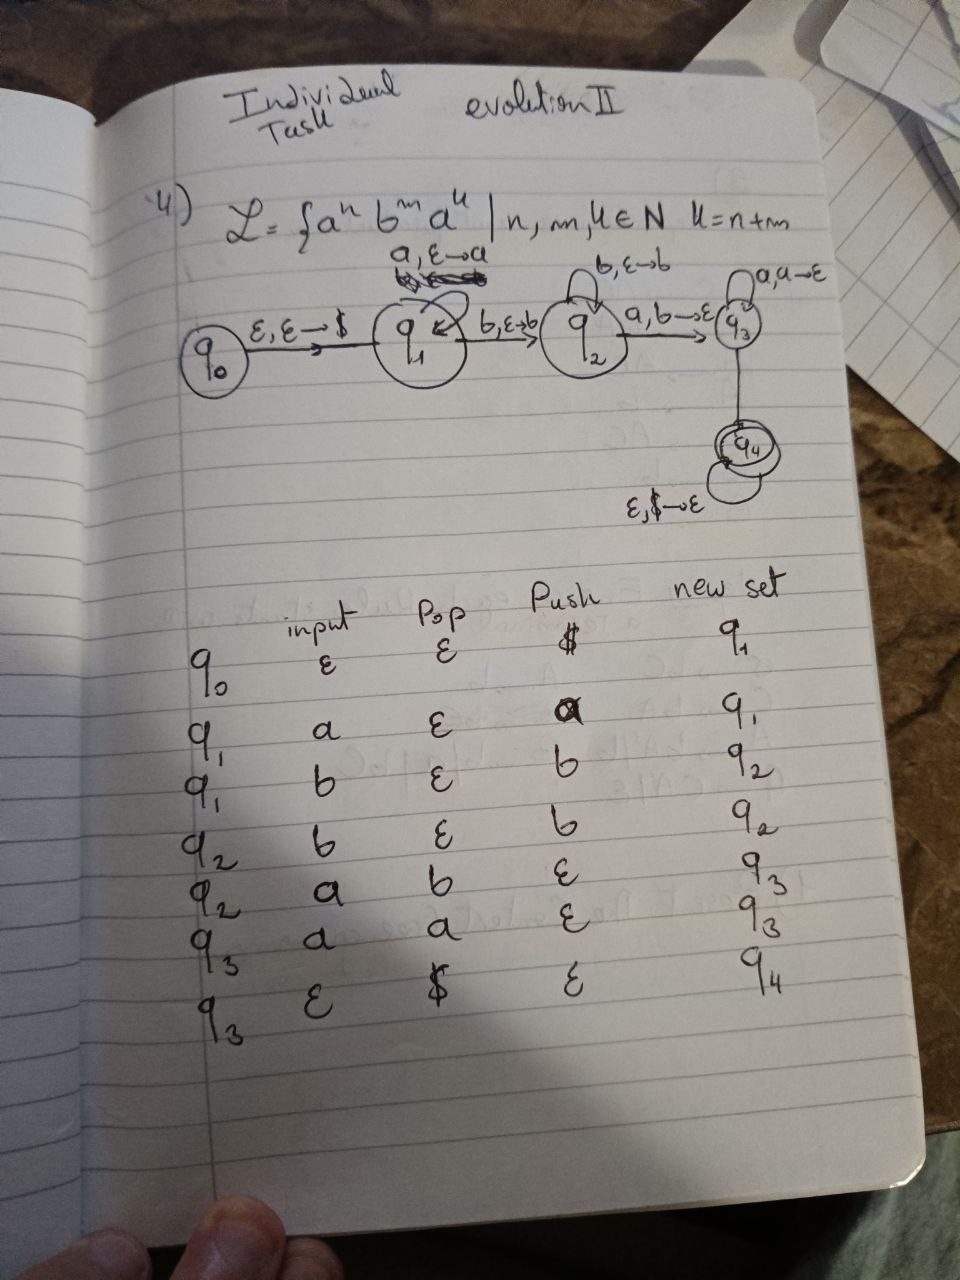 Individual Task evolution II
4) L = {aⁿ bᵐ aᵏ | n, m, k ∈ N k = n + m
a, ε→a
b, ε→b
a, a→ε
ε, ε→$
b, ε→b
a, b→ε
q₀ q₁ q₂ q₃
q₄
ε, $→ε
input Pop Push new set
q₀ ε ε $ q₁
q₁ a ε a q₁
q₁ b ε b q₂
q₂ b ε b q₂
q₂ a b ε q₃
q₃ a a ε q₃
q₃ ε $ ε q₄